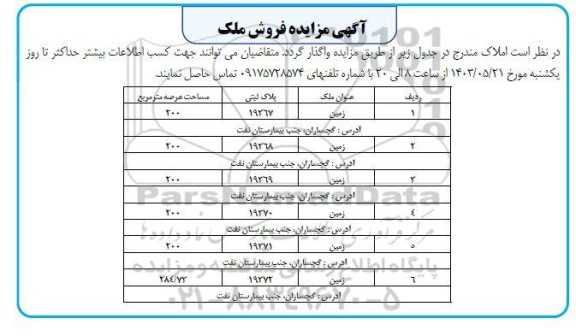 آگهی مزایده فروش ملک
در نظر است املاک مندرج در جدول زیر از طریق مزایده واگذار گردد. متقاضیان می توانند جهت کسب اطلاعات بیشتر حداکثر تا روز
یکشنبه مورخ ۱۴۰۳/۰۵/۲۱ از ساعت ۸ الی ۲۰ با شماره تلفنهای ۰۹۱۷۵۷۲۸۵۷۴ تماس حاصل نمایند.
ردیف عنوان ملک پلاک ثبتی مساحت عرصه مترمربع
۱ زمین ۱۹۳۶۷ ۲۰۰
ادرس : گچساران، جنب بیمارستان نفت
۲ زمین ۱۹۳۶۸ ۲۰۰
ادرس : گچساران، جنب بیمارستان نفت
۳ زمین ۱۹۳۶۹ ۲۰۰
ادرس : گچساران، جنب بیمارستان نفت
٤ زمین ۱۹۳۷۰ ۲۰۰
ادرس : گچساران، جنب بیمارستان نفت
٥ زمین ۱۹۳۷۱ ۲۰۰
ادرس : گچساران، جنب بیمارستان نفت
٦ زمین ۱۹۳۷۲ ۲۸٤/۷۳
ادرس : گچساران، جنب بیمارستان نفت
ParsNamadData
۰۲۱-۸۸۳۴۹۶۷۰-۵